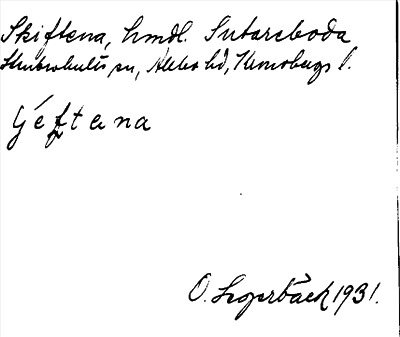 Skiftena, hmdl. Sutareboda
Stenbrohults sn, Allbo hd, Kronobergs l.
yéftena
O. Sagerbäck 1931.